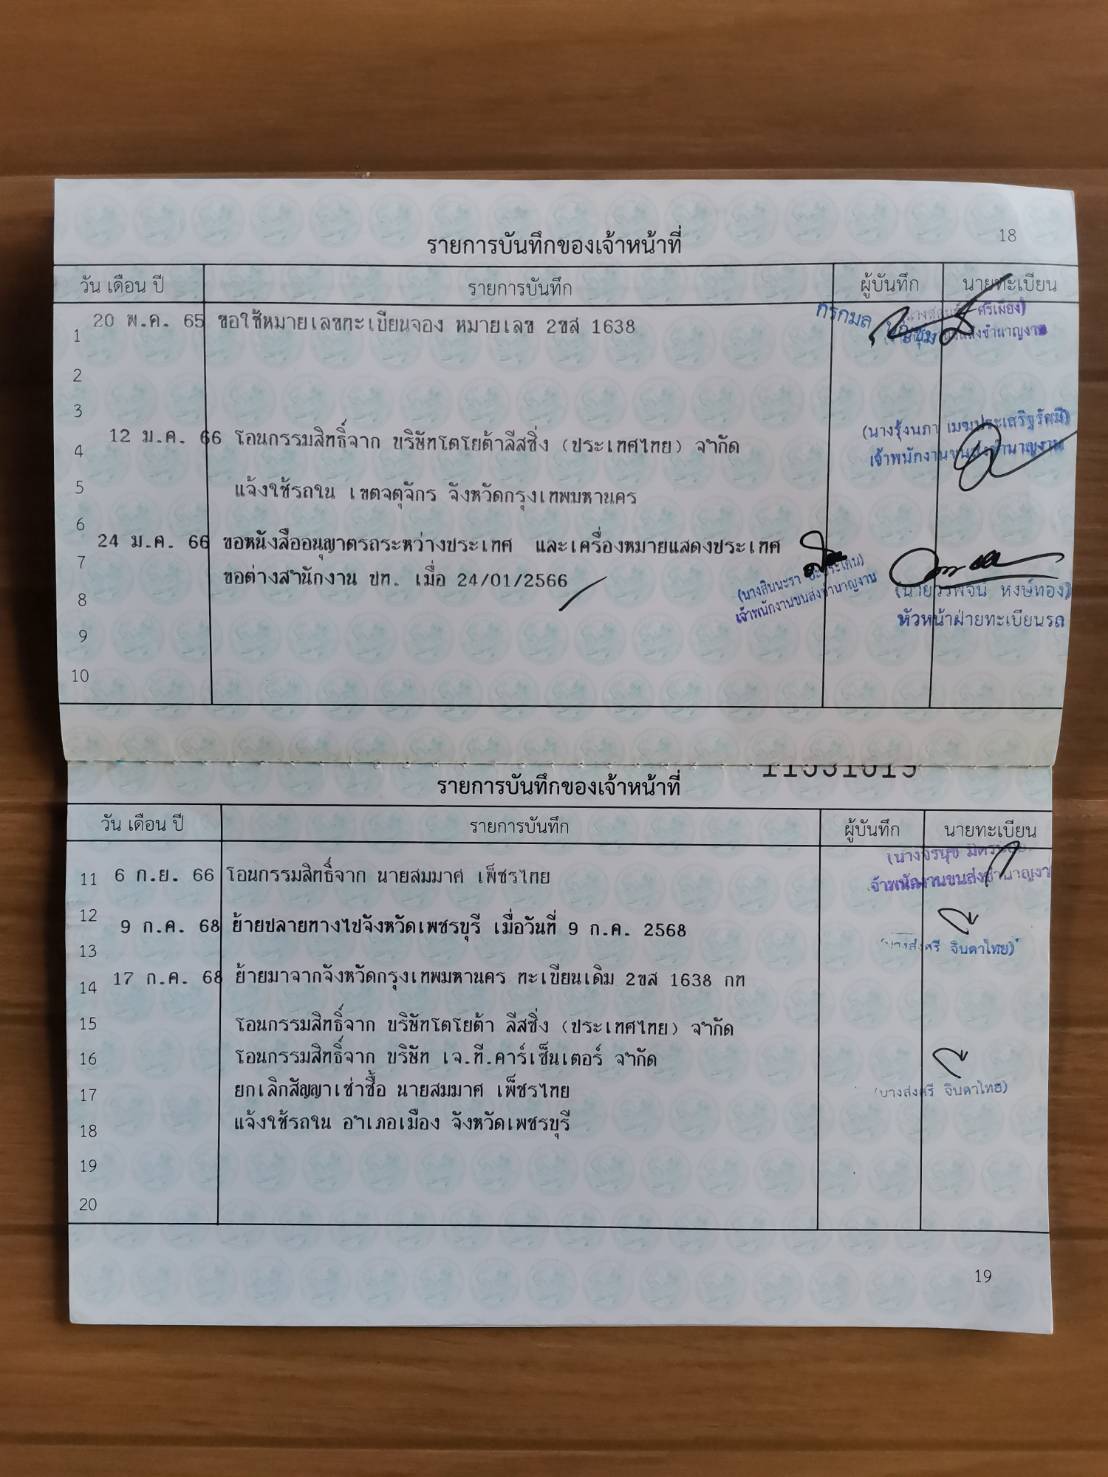 18
รายการบันทึกของเจ้าหน้าที่
วัน เดือน ปี รายการบันทึก ผู้บันทึก นายทะเบียน
1 20 พ.ค. 65 ขอใช้หมายเลขทะเบียนจอง หมายเลข 2ขส 1638 กรกมล ศรีเมือง)
2
3
4 12 ม.ค. 66 โอนกรรมสิทธิ์จาก บริษัทโตโยต้าลีสซิ่ง (ประเทศไทย) จำกัด (นางรุ้งนภา เมฆประเสริฐรัศมี)
เจ้าพนักงานขนส่งชำนาญงาน
5 แจ้งใช้รถใน เขตจตุจักร จังหวัดกรุงเทพมหานคร
6
7 24 ม.ค. 66 ขอหนังสืออนุญาตรถระหว่างประเทศ และเครื่องหมายแสดงประเทศ
ขอต่างสำนักงาน ปท. เมื่อ 24/01/2566
เจ้าพนักงานขนส่งชำนาญงาน
หงษ์ทอง)
8 หัวหน้าฝ่ายทะเบียนรถ
9
10
11531619
รายการบันทึกของเจ้าหน้าที่
วัน เดือน ปี รายการบันทึก ผู้บันทึก นายทะเบียน
11 6 ก.ย. 66 โอนกรรมสิทธิ์จาก นายสมมาศ เพ็ชรไทย
12 9 ก.ค. 68 ย้ายปลายทางไปจังหวัดเพชรบุรี เมื่อวันที่ 9 ก.ค. 2568
13 จินดาไทย)
14 17 ก.ค. 68 ย้ายมาจากจังหวัดกรุงเทพมหานคร ทะเบียนเดิม 2ขส 1638 กท
15 โอนกรรมสิทธิ์จาก บริษัทโตโยต้า ลีสซิ่ง (ประเทศไทย) จำกัด
16 โอนกรรมสิทธิ์จาก บริษัท เจ.ที.คาร์เซ็นเตอร์ จำกัด
17 ยกเลิกสัญญาเช่าซื้อ นายสมมาศ เพ็ชรไทย จินดาไทย)
18 แจ้งใช้รถใน อำเภอเมือง จังหวัดเพชรบุรี
19
20
19